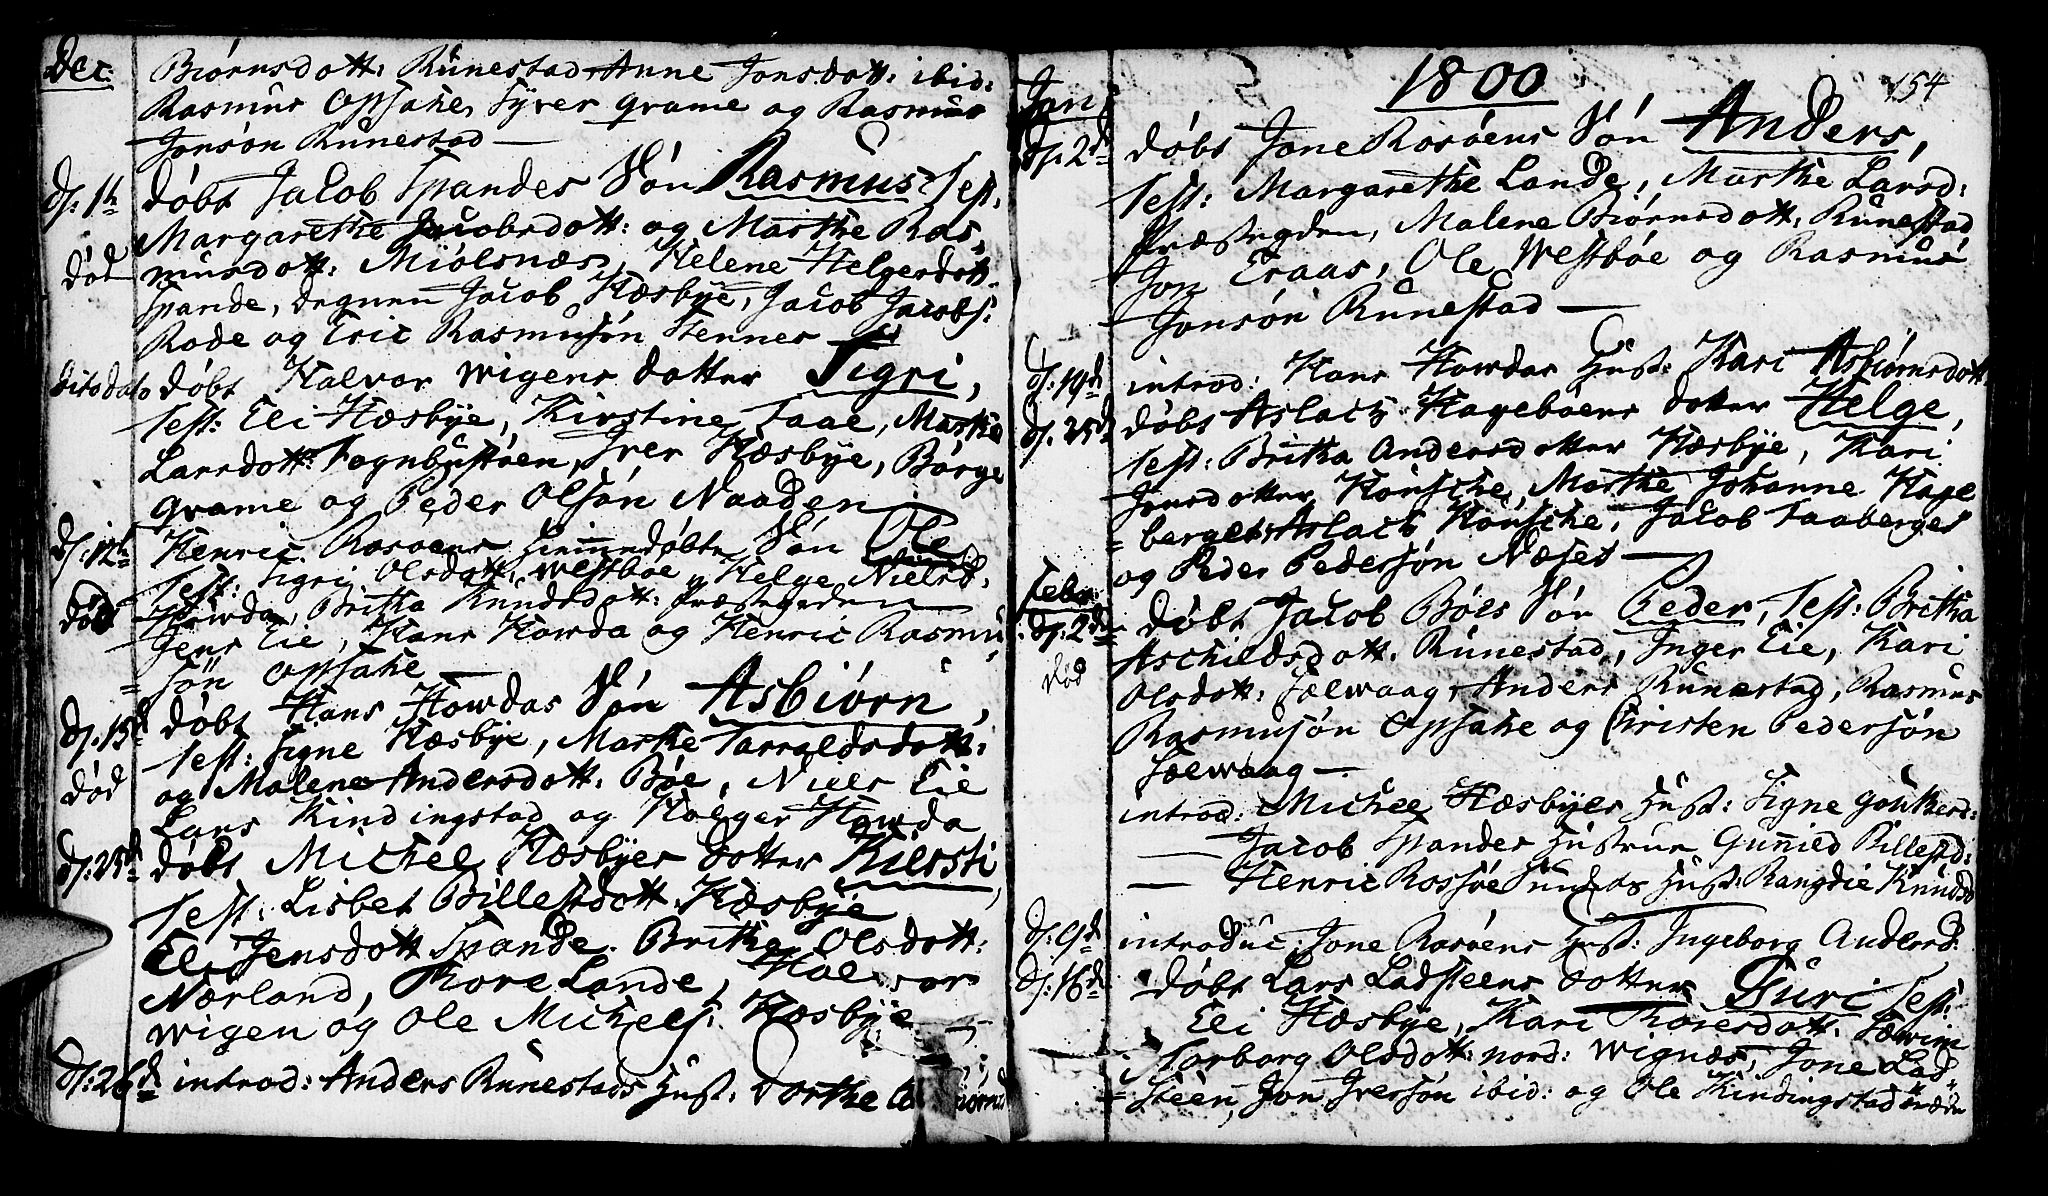 Dec:
Biørnsdott: Rünestad Anne Jonsdott: ibid:
Rasmus Opsahe, Syver Grame og Rasmus
Jonsøn Rünestad —
d: 1ste døbt Jacob Spandes Søn Rasmus Test.
Margarethe Jacobsdott: og Marthe Ras-
død
musdott: Miølsnæs, Helene Helgesdott.
Spande, degnen Jacob Hæsbÿe, Jacob Jacobs:
Rode og Eric Rasmusøn Stennes
ditodato døbt Halvor Wigens datter Sigri,
Test: Eli Hæsbÿe, Kirstine Taae, Marthe
Larsdott: Fognbustøen, Iver Hæsbÿe, Børge
Grame og Peder Olsøn Naaden
d: 12te Henric Rosøens hiemmedøbte Søn Ole
Test: Sigri Olsdott: Westbøe, Helge Nielsd.
død
Howda, Britha Knüdsdott: Præstegrden
Jens Eie, Hans Howda og Henric Rasmu
= søn Opsahe —
d: 15de døbt Hans Howdas Søn Asbiørn,
Test: Signe Hæsbÿe, Marthe Tarraldsdott:
og Malene Andersdott: Bøe, Niels Eie
død
Lars Kindingstad og Holger Howda
d: 25de døbt Michel Hæsbÿes dotter Kiersti
Test: Lisbet Billestdott Hæsbÿe
Eli Jensdott Spande. Brithe Olsdott:
Nærland, Kore Lande, Halvor
Wigen og Ole Michels: Hæsbÿe
d: 26de introd: Anders Rünestads Hust: Dorthe
1800
154
Jan
d: 2de døbt Jone Rosøens Søn Anders,
Test: Margarethe Lande, Marthe Larsd:
Præstegden, Malene Biørnsdott: Rünestad
Jon Eraas, Ole Westbøe og Rasmus
Jonsøn Rünestad —
d: 19de introd: Hans Howdas Hust: Kari Asbiørnsdott
d. 25de døbt Aslach Hagebøens dotter Helge,
Test: Britha Andersdotter Hæsbÿe, Kari
Jonsdotter Honsche, Marthe Johanne Hage
= berget, Aslach Honsche, Jacob Faaberget
og Peder Pedersøn Næset —
Febr:
d: 2de døbt Jacob Bøes Søn Peder, Test: Britha
Aschildsdott: Rünestad, Inger Eie, Kari
død
Olsdott: Sælwaag, Anders Rünestad, Rasmus
Rasmusøn Opsahe og Christen Pedersøn
Sælwaag —
introd: Michel Hæsbÿes Hust: Signe Gouthersd:
— Jacob Spandes Hustrue Gunild Billestd:
— Henric Rossøe Sundts Hust: Rangdie Knüdsd
d: 9de introduc: Jone Rosøens Hust: Ingeborg Andersd:
d: 16de døbt Lars Ladsteens dotter Guri Test:
Eli Hæsbÿe, Kari Koresdott: Sæwim
Torborg Olsdott: nord: Wignæs, Jone Lad-
= steen, Jon Iversøn ibid: og Ole Kindingstad